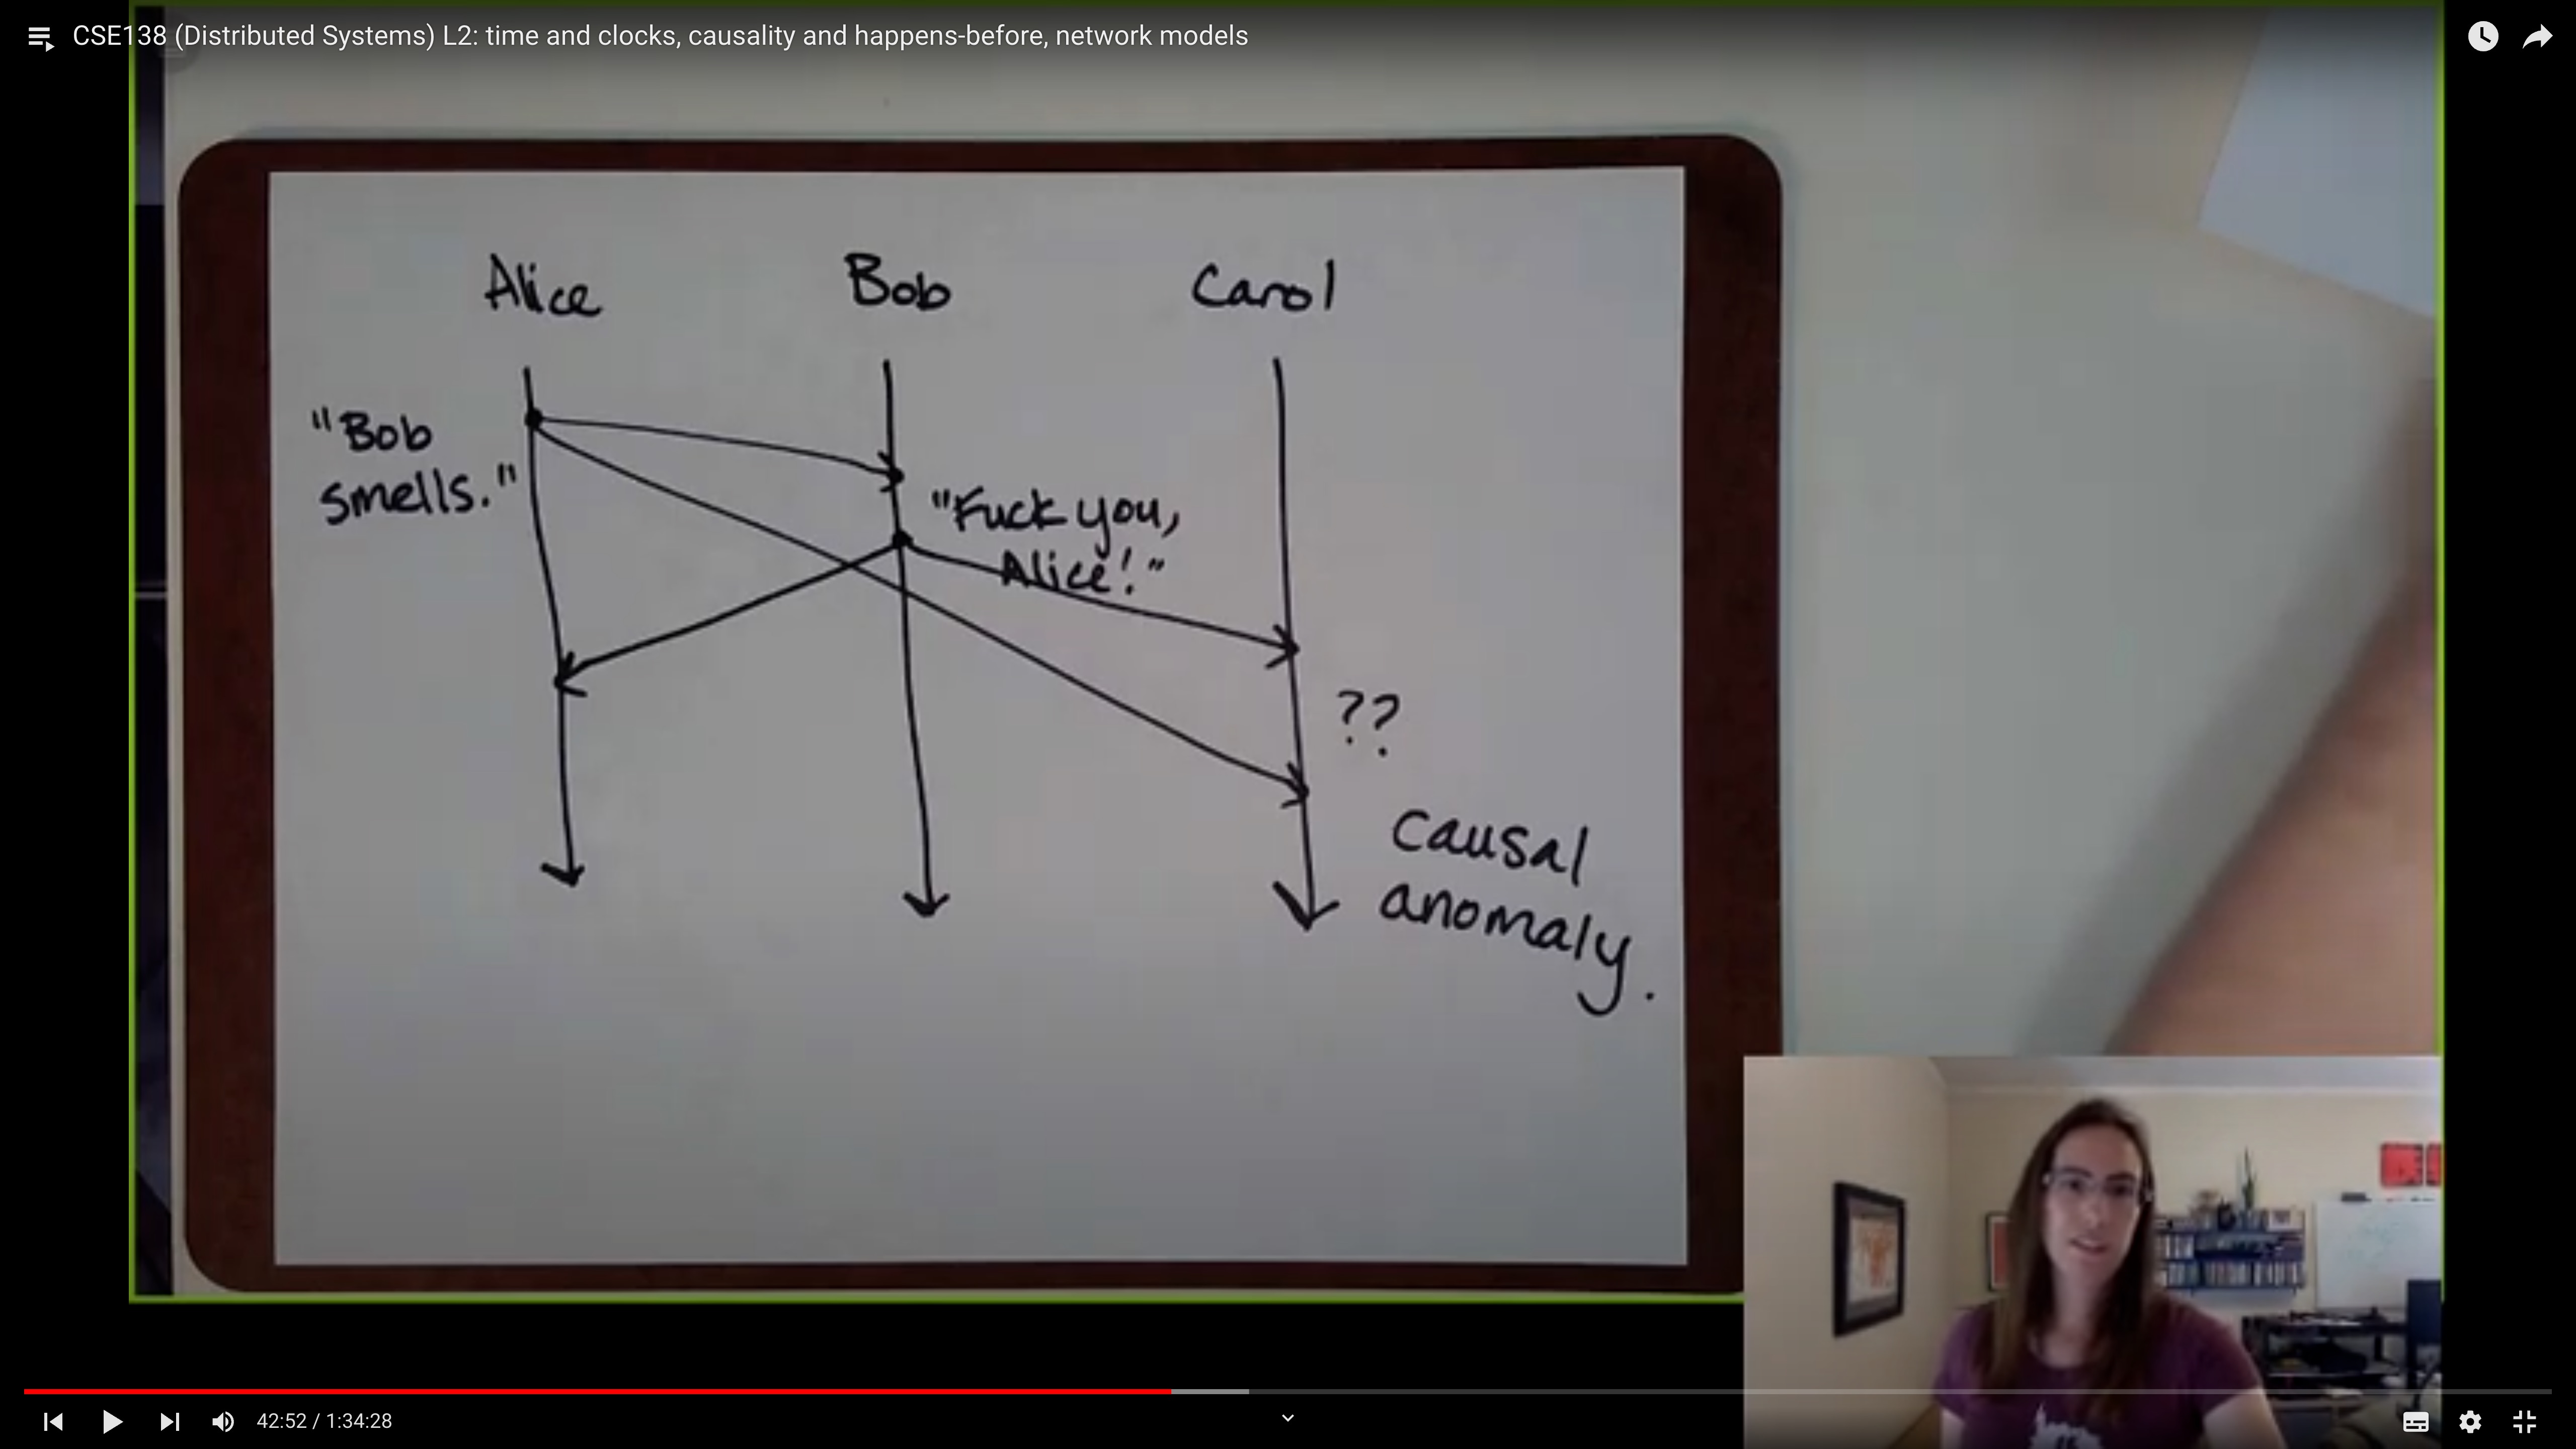 CSE138 (Distributed Systems) L2: time and clocks, causality and happens-before, network models
Alice
Bob
Carol
"Bob
smells."
"Fuck you,
Alice!"
??
Causal
anomaly.
42:52 / 1:34:28